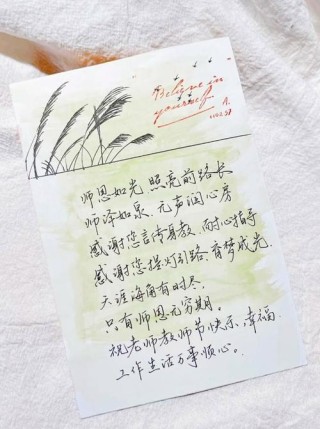 Believe in
yourself
师恩如光，照亮前路长
师泽如泉，无声润心房
感谢您言传身教，耐心指导
感谢您提灯引路，育梦成光.
天涯海角有时尽，
只有师恩无穷期。
祝老师教师节快乐，幸福
工作生活万事顺心。